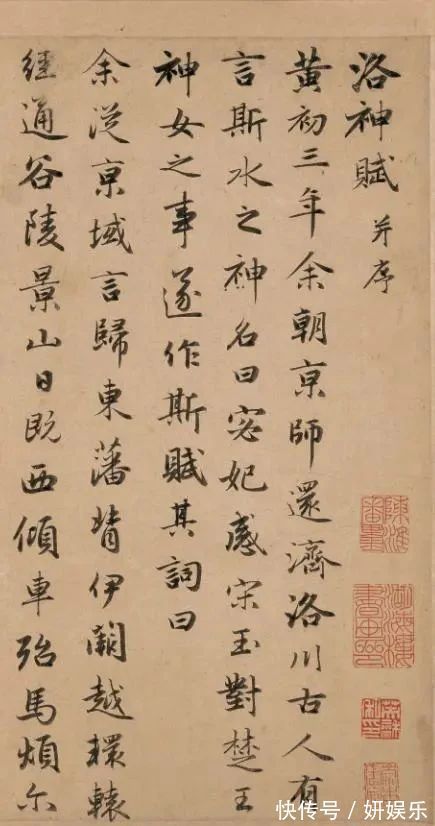 洛神賦 并序
黄初三年余朝京師還濟洛川古人有
言斯水之神名曰宓妃感宋玉對楚王
神女之事遂作斯賦其詞曰
余從京域言歸東藩背伊闕越轘轅
經通谷陵景山日既西傾車殆馬煩尔
快传号 / 妍娱乐